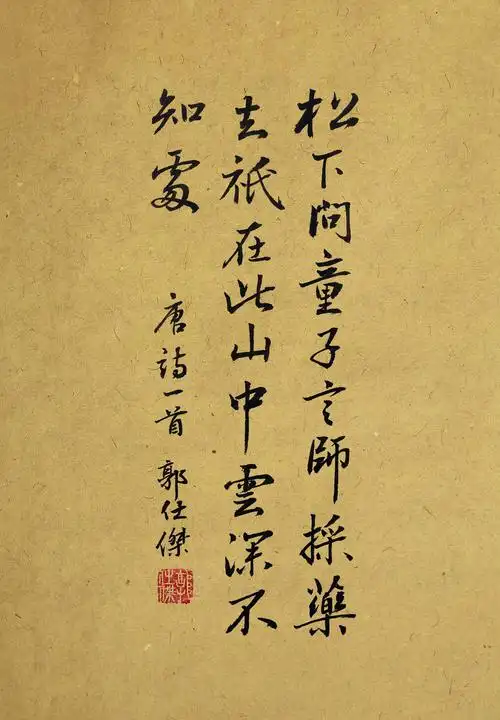 松下問童子言師採藥
去祇在此山中雲深不
知處
唐詩一首 郭仕傑